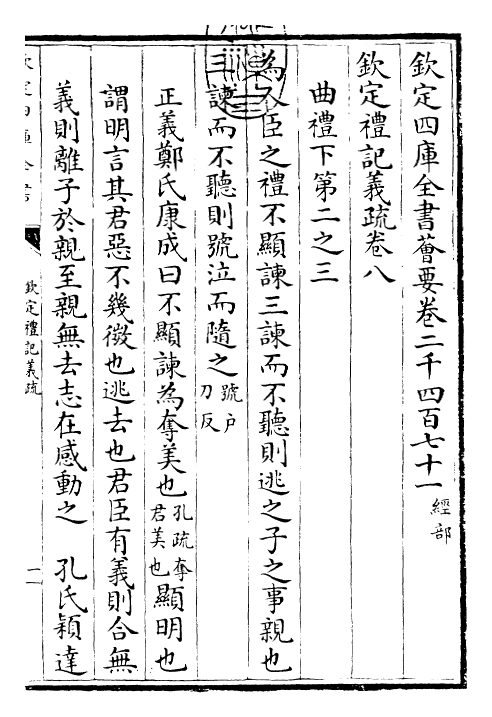 欽定四庫全書薈要卷二千四百七十一經部
欽定禮記義疏卷八
曲禮下第二之三
為人臣之禮不顯諫三諫而不聽則逃之子之事親也
三諫而不聽則號泣而隨之號户刀反
正義鄭氏康成曰不顯諫為奪美也孔疏奪君美也顯明也
謂明言其君惡不幾微也逃去也君臣有義則合無
義則離子於親至親無去志在感動之 孔氏穎達
欽定禮記義疏
一